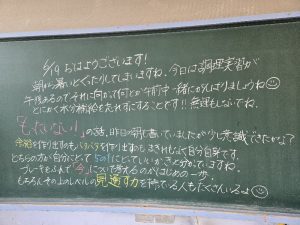 6/19 おはようございます！
朝から暑いとぐったりしてしまいますね。今日は調理実習が
午後あるのでそれに向かって何とか午前中一緒にがんばりましょうね
とにかく水分補給を忘れずにすることです!! 無理もしないでね。
「もったいない！」の話、昨日の朝に書いていましたが少し意識できたかな？
余裕を作り出すのもバタバタを作り出すのもまぎれもなく自分自身です。
どちらの方が自分にとってプラスにとっていいかきっと分かってますね。
「今」について考えるのがはじめの一歩。
もちろんその上のレベルの見通す力を持っている人もたくさんいるよ